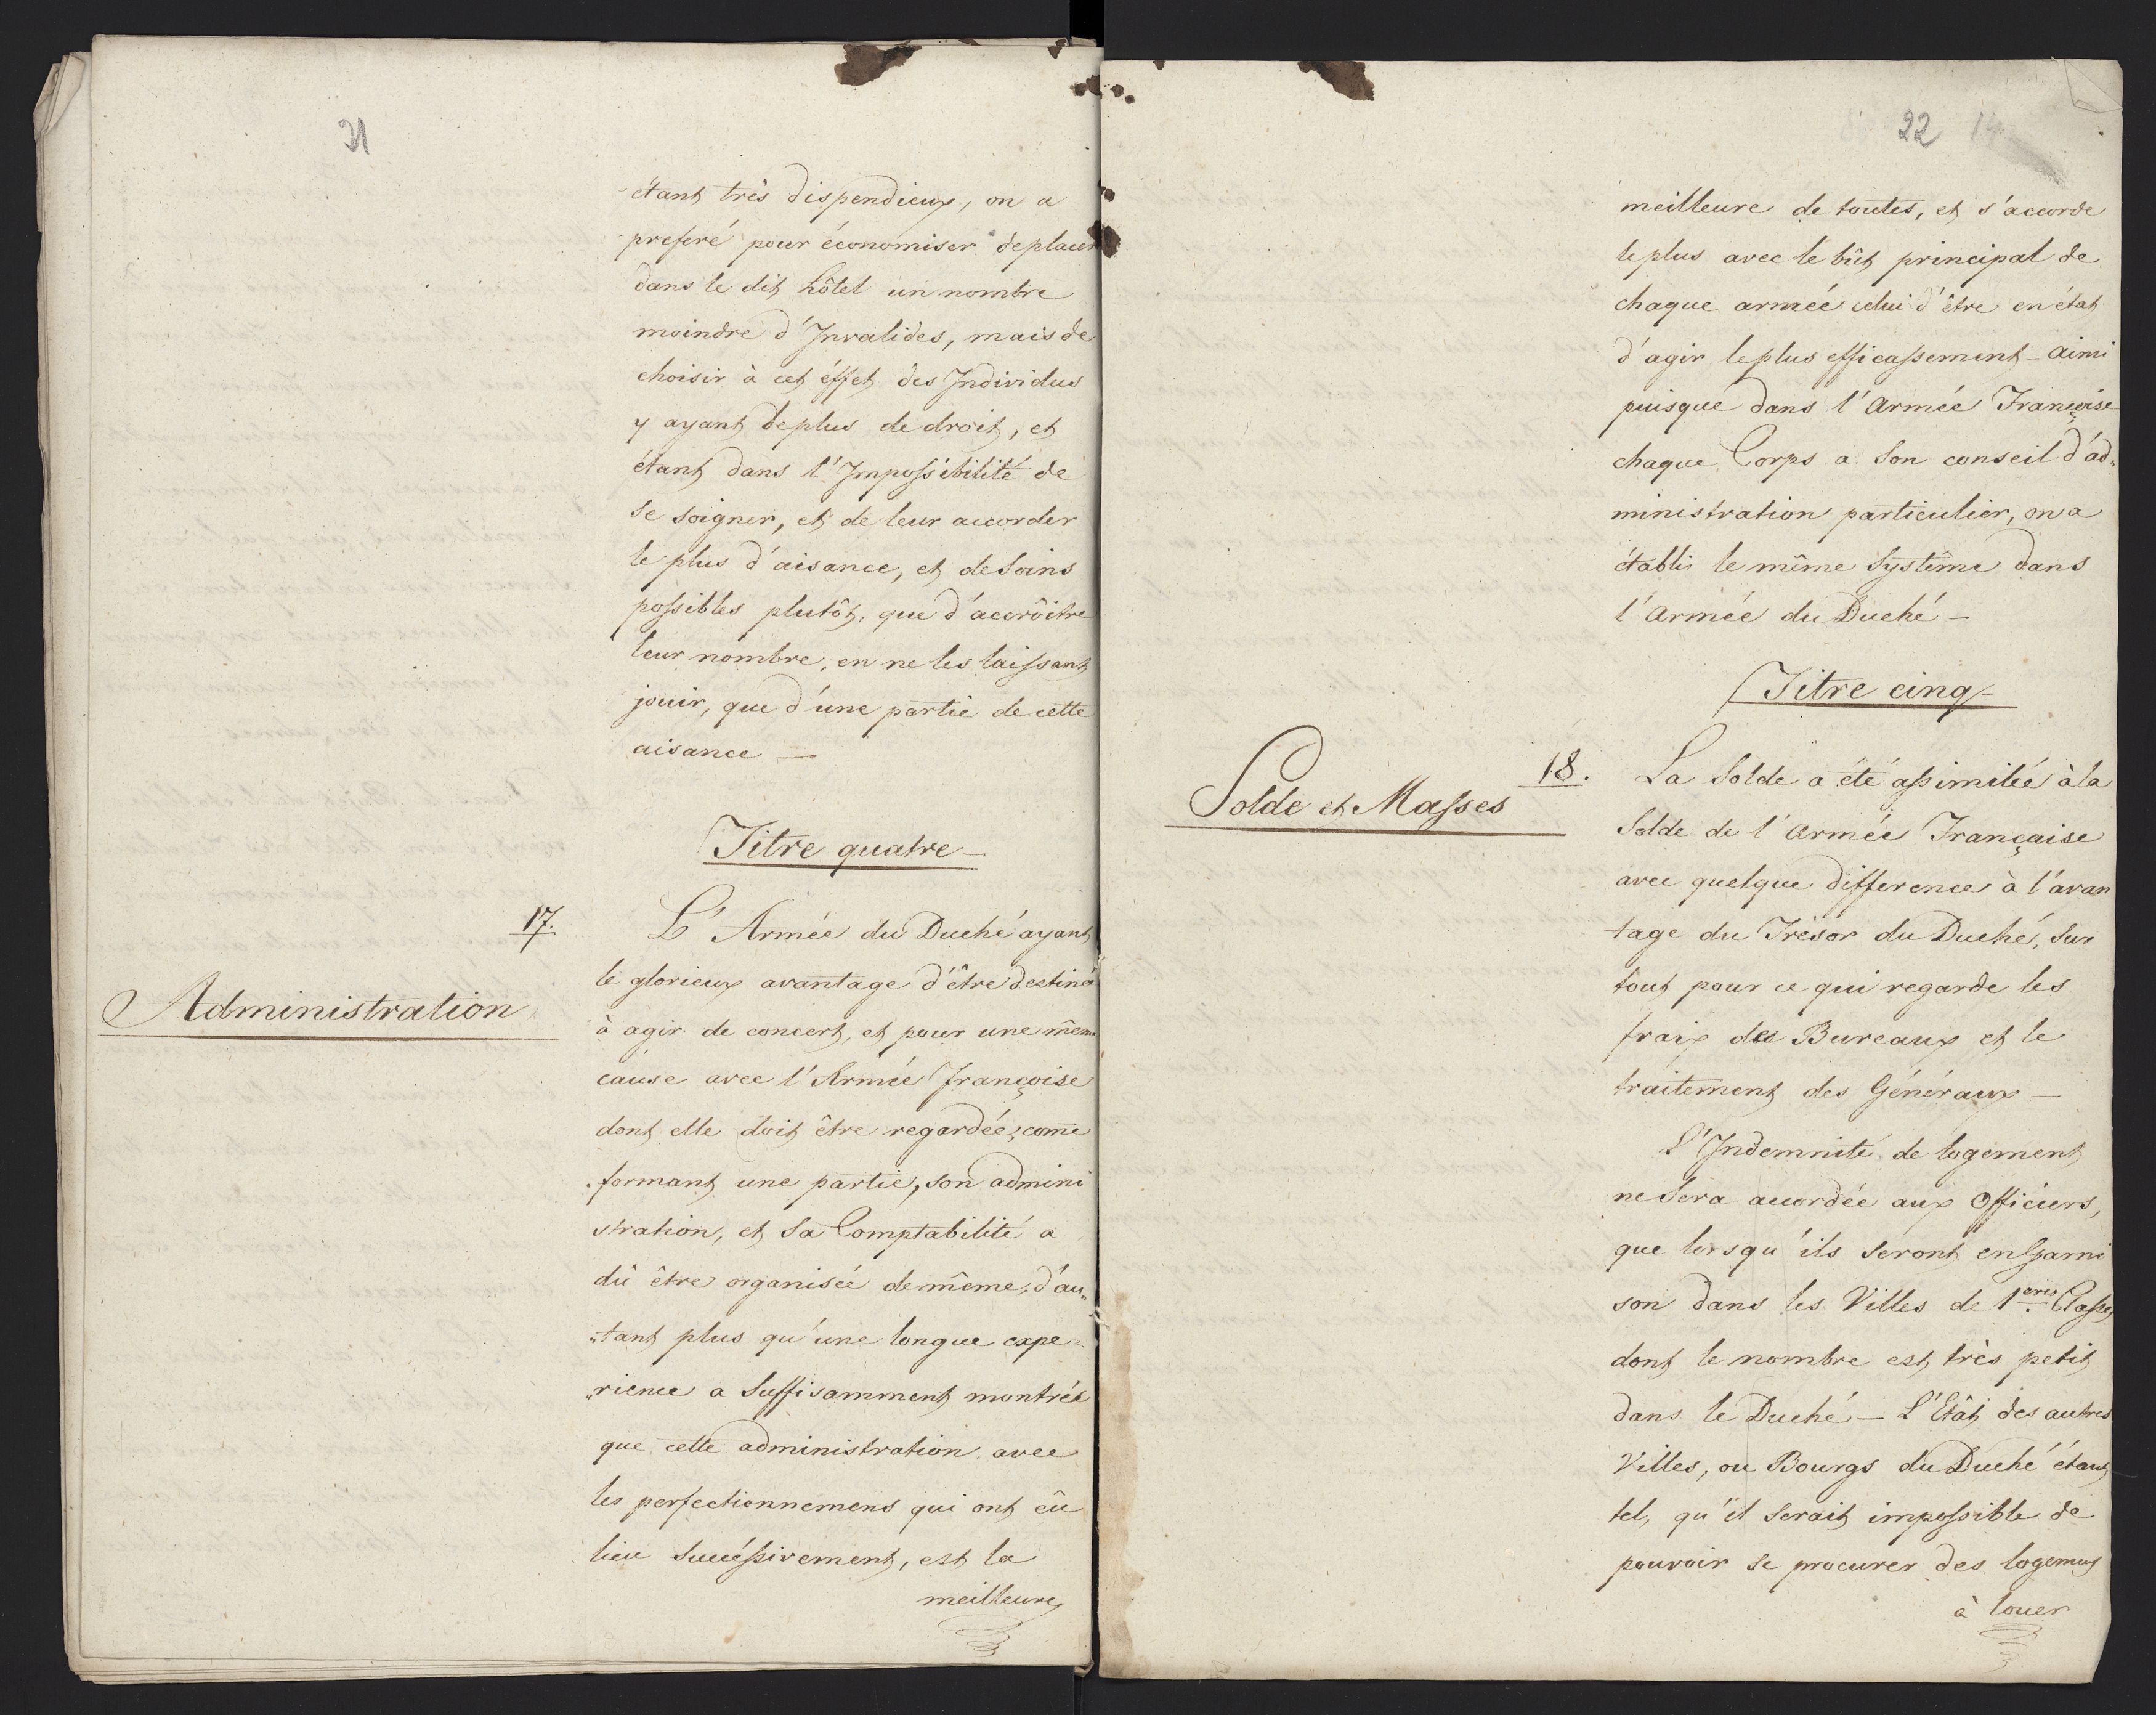 21
étant très dispendieux, on a
preferé pour économiser de placer
dans le dit hôtel un nombre
moindre d'Invalides, mais de
choisir à cet éffet des Individus
y ayant le plus de droit, et
étant dans l'Impossibilité de
se soigner, et de leur accorder
le plus d'aisance, et de soins
possibles plutôt, que d'accroître
leur nombre, en ne les laissant
jouir, que d'une partie de cette
aisance —
Titre quatre —
17.
Administration
L'Armée du Duché ayant
le glorieux avantage d'être destiné
à agir de concert, et pour une même
cause avec l'Armée françoise
dont elle doit être regardée, come
formant une partie, son admini
stration, et sa Comptabilité a
dû être organisée de même, d'au„
„tant plus qu'une longue expe=
„rience a suffisamment montrée
que cette administration avec
les perfectionnemens qui ont eû
lieu succéssivement, est la
meilleure
22 14
meilleure de toutes, et s'accorde
le plus avec le bût principal de
chaque armée celui d'être en état
d'agir le plus efficassement — ainsi
puisque dans l'Armée Françoise
chaque Corps a son conseil d'ad„
ministration particulier, on a
établi le même Systême dans
l'Armée du Duché —
Titre cinq —
Solde et Masses
18.
La Solde a été assimilée à la
Solde de l'Armée Française
avec quelque difference à l'avan
tage du Trésor du Duché, sur
tout pour ce qui regarde les
fraix des Bureaux et le
traitement des Généraux —
L'Indemnité de logement
ne sera accordée aux Officiers,
que lorsqu'ils seront en Garni
son dans les Villes de 1ères Classes
dont le nombre est très petit
dans le Duché — L'Etât des autres
Villes, ou Bourgs du Duché étant
tel, qu'il serait impossible de
pouvoir se procurer des logemens
à louer